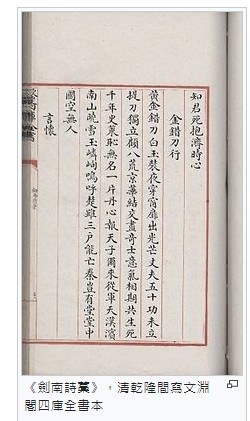 知君死抱濟時心
金錯刀行
黃金錯刀白玉裝夜穿窗扉出光芒丈夫五十功未立
提刀獨立顧八荒京華結交盡奇士意氣相期共生死
千年史策恥無名一片丹心報天子爾來從軍天漢濱
南山曉雪玉嶙峋嗚呼楚雖三戶能亡秦豈有堂堂中
國空無人
言懷
欽定四庫全書
《劍南詩稾》，清乾隆間寫文淵
閣四庫全書本